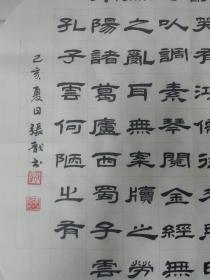 笑有
以調素琴閱金經無
之亂耳無案牘之勞
陽諸葛廬西蜀子雲
孔子雲何陋之有
己亥夏日張書